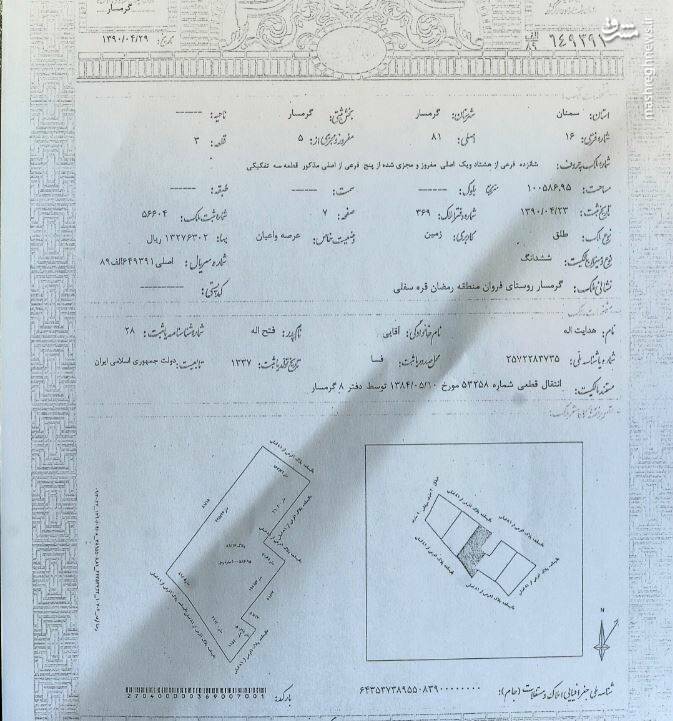 گرمسار
۱۳۹۰/۰۴/۲۹
الف ۸۹ ۶۴۹۳۹۱
مشرق
mashreghnews.ir
استان: سمنان شهرستان: گرمسار بخش ثبتی: گرمسار ناحیه: -----
شماره فرعی: ۱۶ اصلی: ۸۱ مفروز و مجزی از: ۵ قطعه: ۳
شماره ملک بحروف: شانزده فرعی از هشتاد ویک اصلی مفروز و مجزی شده از پنج فرعی از اصلی مذکور قطعه سه تفکیکی
مساحت: ۱۰۰۵۸۶.۹۵ بلوک: ----- سمت: ----- طبقه: -----
تاریخ ثبت: ۱۳۹۰/۰۴/۲۳ شماره دفتر املاک: ۳۶۹ صفحه: ۷ شماره ثبت ملک: ۵۶۶۰۴
نوع ملک: طلق کاربری: زمین وضعیت خاص: عرصه واعیان بها: ۱۳۲۷۶۳۰۲ ریال
نوع و میزان مالکیت: ششدانگ شماره سریال: اصلی ۶۴۹۳۹۱الف۸۹
نشانی ملک: گرمسار روستای فروان منطقه رمضان قره سفلی کدپستی: ----------
نام: هدایت اله نام خانوادگی: آقایی نام پدر: فتح اله شماره شناسنامه یا ثبت: ۲۸
شماره یا شناسه ملی: ۲۵۷۲۲۸۳۷۳۵ محل صدور یا ثبت: فسا تاریخ تولد یا ثبت: ۱۳۳۷ تابعیت: دولت جمهوری اسلامی ایران
مستند مالکیت: انتقال قطعی شماره ۵۳۲۵۸ مورخ ۱۳۸۴/۰۵/۱۰ توسط دفتر ۸ گرمسار
N
شناسه ملی جغرافیایی املاک و مستغلات (جام): ۶۴۳۵۳۷۳۸۹۵۵۰۸۳۹۰۰۰۰۰۰۰۰
بارکد: 27040000369007001